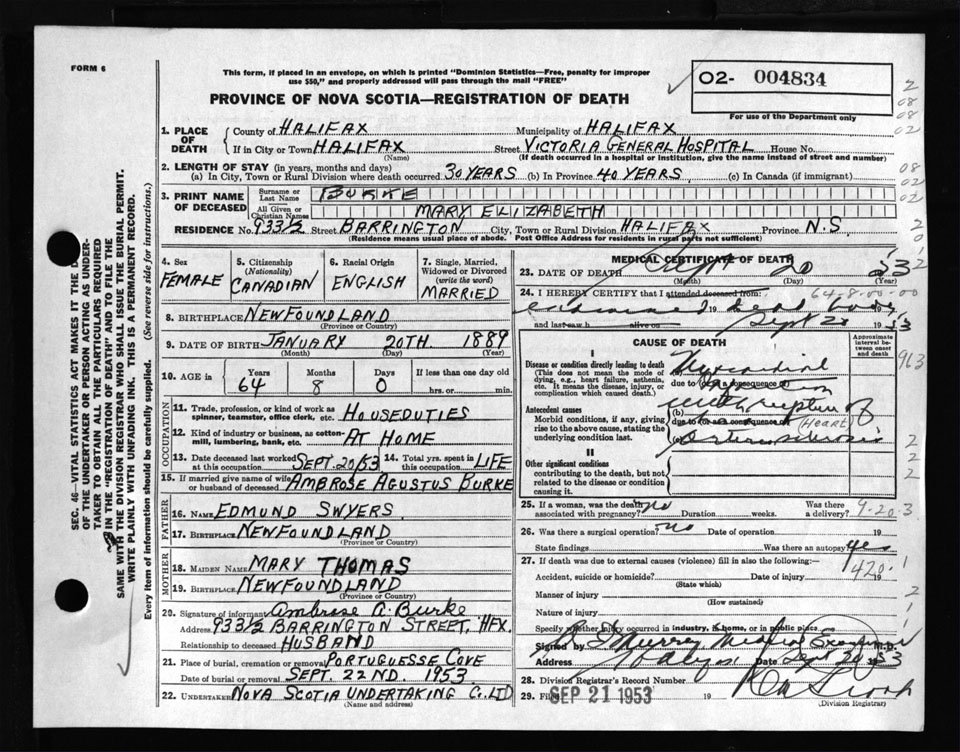 FORM 6
This form, if placed in an envelope, on which is printed "Dominion Statistics—Free, penalty for improper
use $50," and properly addressed will pass through the mail "FREE"
PROVINCE OF NOVA SCOTIA—REGISTRATION OF DEATH
02- 004834
For use of the Department only
2
08
08
02
1. PLACE OF DEATH
County of HALIFAX Municipality of HALIFAX
If in City or Town HALIFAX Street VICTORIA GENERAL HOSPITAL House No.
(Name) (If death occurred in a hospital or institution, give the name instead of street and number)
2. LENGTH OF STAY (in years, months and days)
(a) In City, Town or Rural Division where death occurred 30 YEARS (b) In Province 40 YEARS (c) In Canada (if immigrant)
08
02
02
3. PRINT NAME OF DECEASED
Surname or Last Name BURKE
All Given or Christian Names MARY ELIZABETH
RESIDENCE No. 933 1/2 Street BARRINGTON City, Town or Rural Division HALIFAX Province N.S
(Residence means usual place of abode. Post Office Address for residents in rural parts not sufficient)
SEC. 46—VITAL STATISTICS ACT MAKES IT THE
OF THE UNDERTAKER OR PERSON ACTING AS UNDER-
TAKER TO OBTAIN ALL THE PARTICULARS REQUIRED
IN THE "REGISTRATION OF DEATH" AND TO FILE THE
SAME WITH THE DIVISION REGISTRAR WHO SHALL ISSUE THE BURIAL PERMIT.
WRITE PLAINLY WITH UNFADING INK. THIS IS A PERMANENT RECORD.
Every item of information should be carefully supplied. (See reverse side for instructions.)
4. Sex FEMALE
5. Citizenship (Nationality) CANADIAN
6. Racial Origin ENGLISH
7. Single, Married, Widowed or Divorced (write the word) MARRIED
8. BIRTHPLACE NEWFOUNDLAND
(Province or Country)
9. DATE OF BIRTH JANUARY 20TH 1889
(Month) (Day) (Year)
10. AGE in Years 64 Months 8 Days 0 If less than one day
hrs. or min.
OCCUPATION
11. Trade, profession, or kind of work as spinner, teamster, office clerk, etc. HOUSEDUTIES
12. Kind of industry or business, as cotton-mill, lumbering, bank, etc. AT HOME
13. Date deceased last worked at this occupation SEPT. 20/53 14. Total yrs. spent in this occupation LIFE
15. If married give name of wife or husband of deceased AMBROSE AGUSTUS BURKE
FATHER
16. Name EDMUND SWYERS
17. Birthplace NEWFOUNDLAND
(Province or Country)
MOTHER
18. MAIDEN NAME MARY THOMAS
19. BIRTHPLACE NEWFOUNDLAND
(Province or Country)
20. Signature of informant Ambrose A. Burke
Address 933 1/2 BARRINGTON STREET, HFX.
Relationship to deceased HUSBAND
21. Place of burial, cremation or removal PORTUGUESSE COVE
Date of burial or removal SEPT. 22ND. 1953
22. UNDERTAKER NOVA SCOTIA UNDERTAKING Co. LTD
(Name and address)
MEDICAL CERTIFICATE OF DEATH
23. DATE OF DEATH Sept 20 1953
(Month) (Day)
24. I HEREBY CERTIFY that I attended deceased from:
64-8-00-00
examined dead body
and last saw h alive on Sept 20 1953
CAUSE OF DEATH
Approximate interval between onset and death
I
Disease or condition directly leading to death
(This does not mean the mode of dying, e.g., heart failure, asthenia, etc. It means the disease, injury, or complication which caused death.)
(a) Myocardial
due to (or as a consequence of)
Antecedent causes
Morbid conditions, if any, giving rise to the above cause, stating the underlying condition last.
(b) with rupture of
due to (or as a consequence of) (HEART)
(c)
II
Other significant conditions
contributing to the death, but not related to the disease or condition causing it.
963
2
2
2
25. If a woman, was the death associated with pregnancy? no Duration weeks. Was there a delivery?
9-20-3
26. Was there a surgical operation? no Date of operation 19
State findings Was there an autopsy yes
27. If death was due to external causes (violence) fill in also the following:
420.1
Accident, suicide or homicide? Date of injury 19
(State which)
Manner of injury 2
(How sustained)
Nature of injury
Specify whether injury occurred in industry, in home, or in public place
Signed by Murray Medical Examiner M.D.
Address Date Sept 20 1953
28. Division Registrar's Record Number
29. Filed SEP 21 1953 19
(Division Registrar)